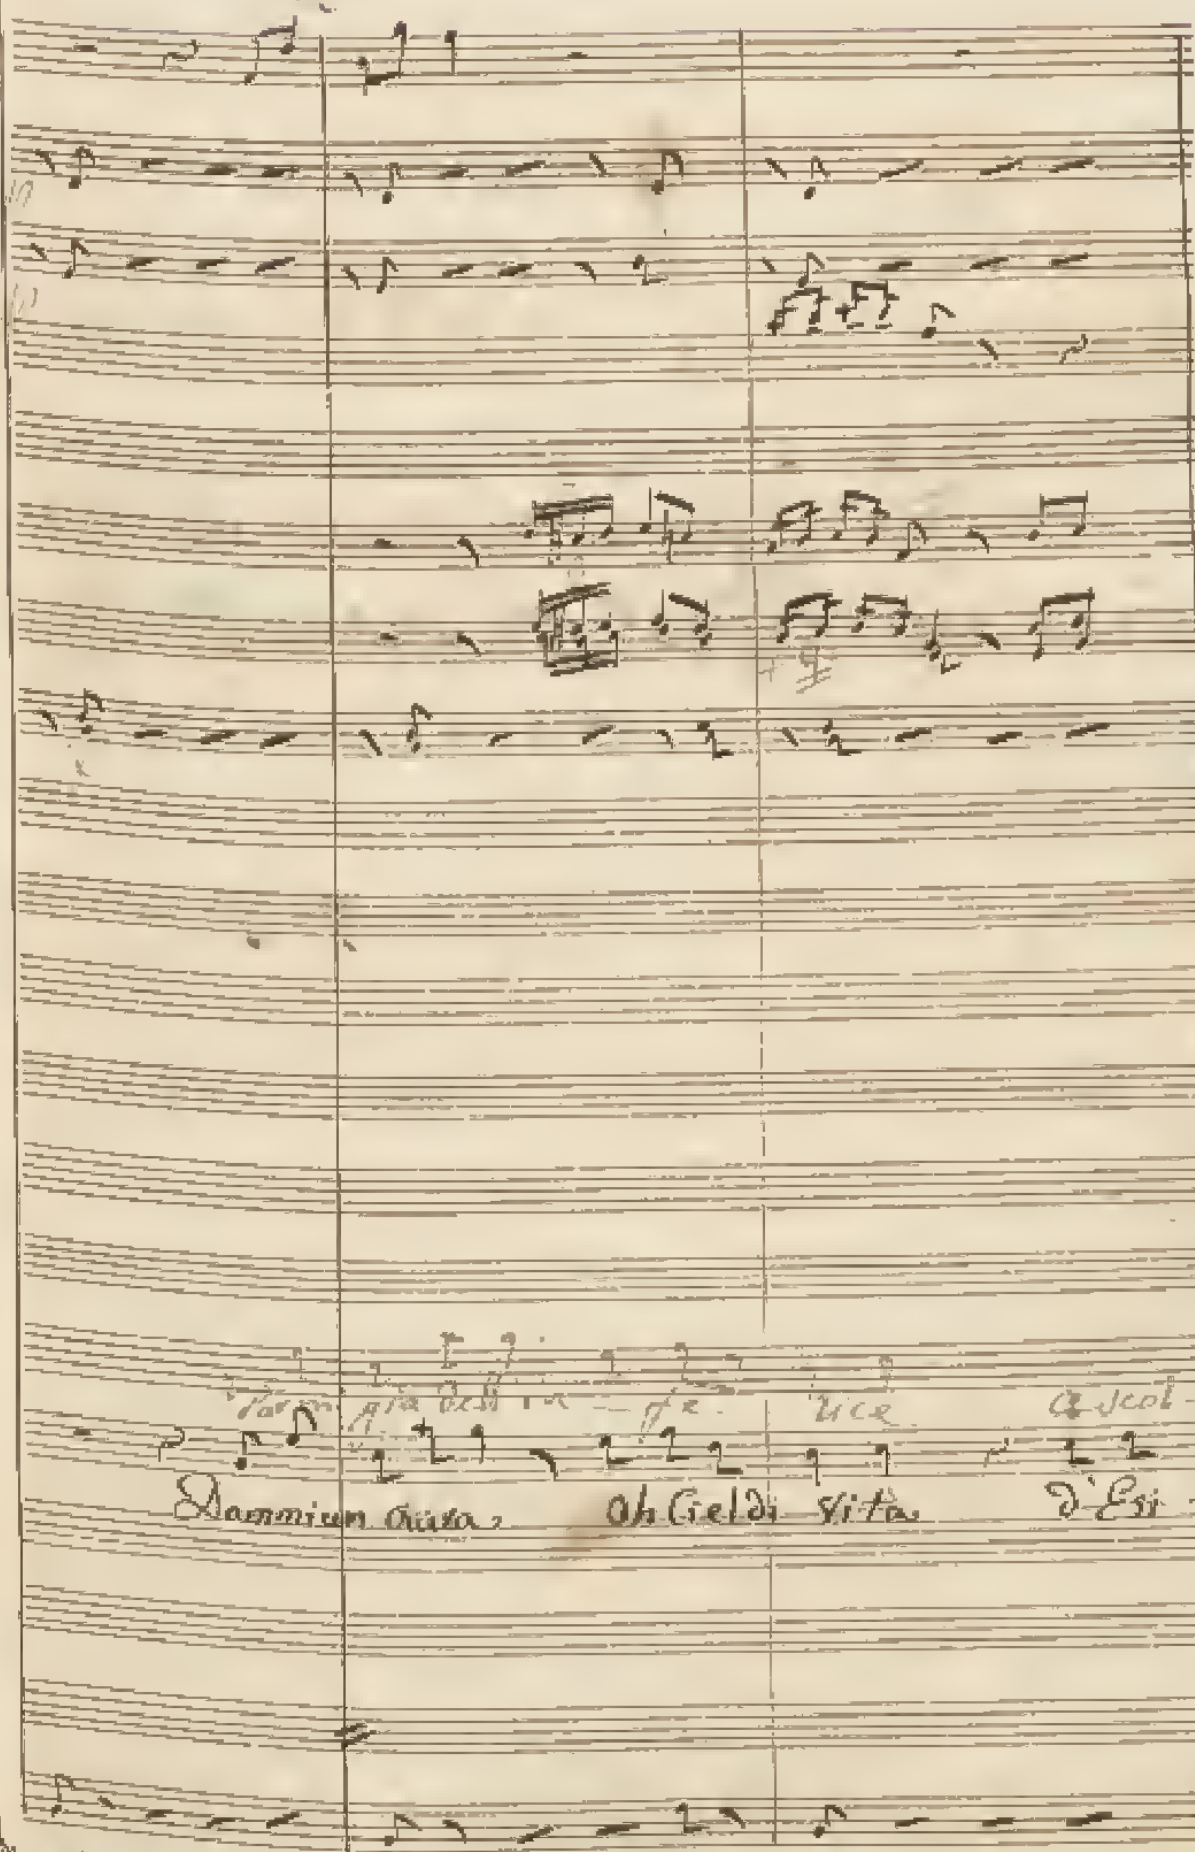 già dest in - fe - lice ascol-
Dammi un' aura, Oh Ciel di vita, d'Esi-